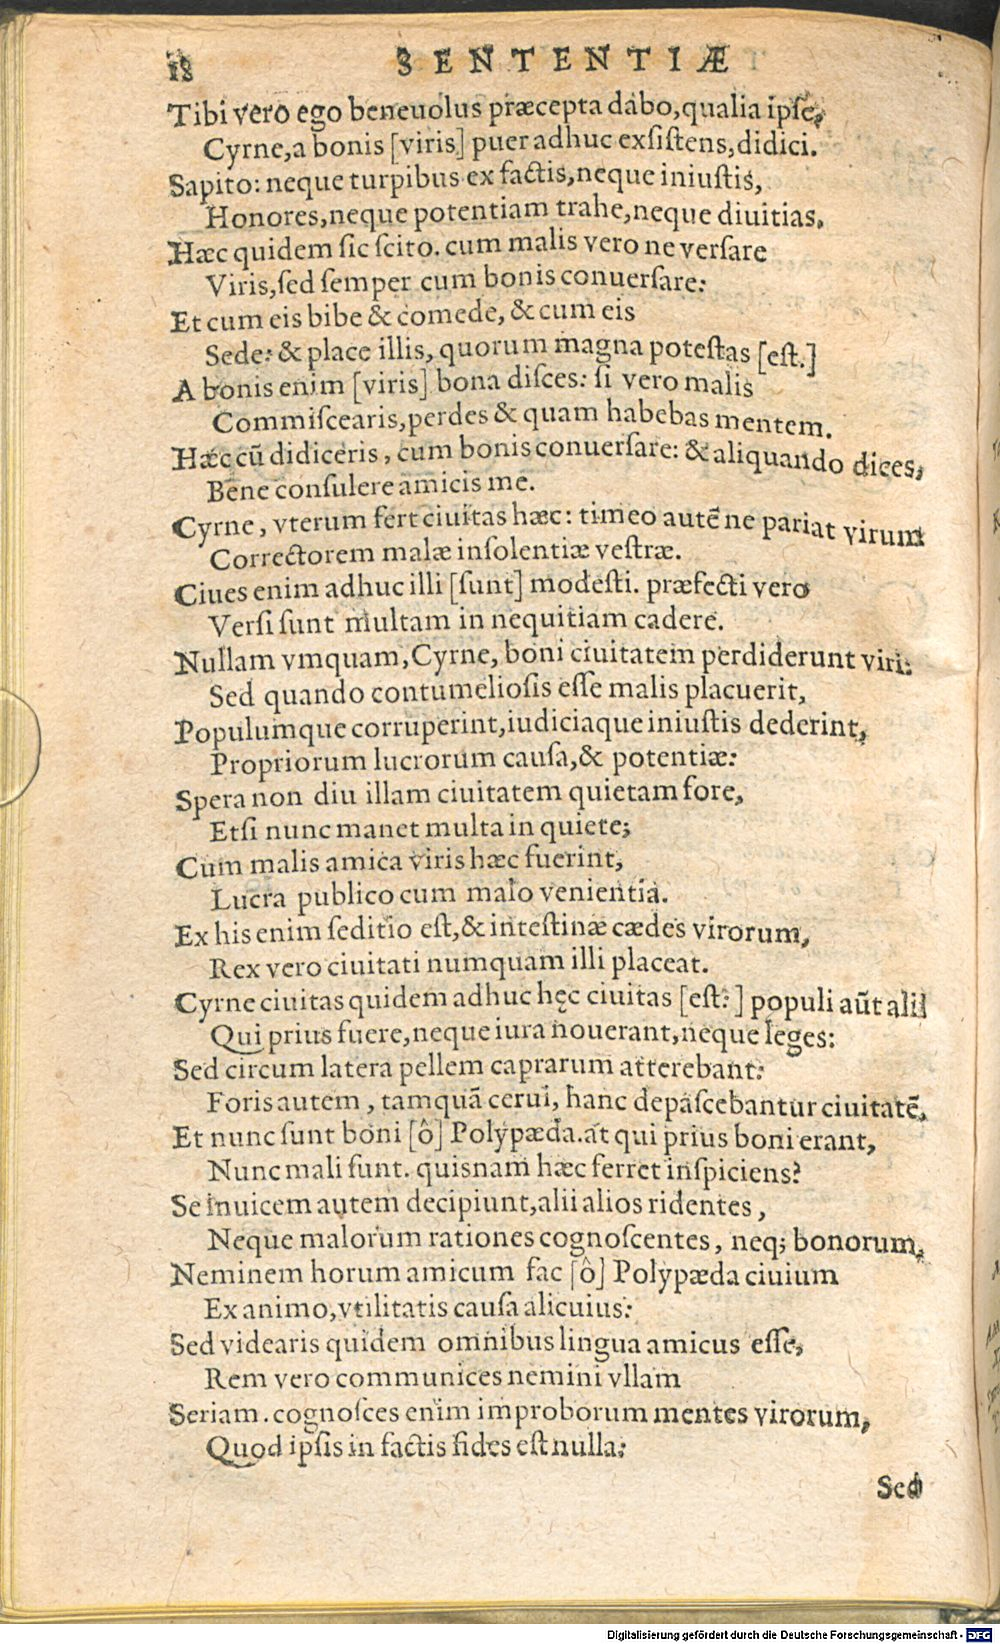 18 SENTENTIÆ
Tibi vero ego beneuolus præcepta dabo, qualia ipſe,
Cyrne, a bonis [viris] puer adhuc exſiſtens, didici.
Sapito: neque turpibus ex factis, neque iniuſtis,
Honores, neque potentiam trahe, neque diuitias.
Hæc quidem ſic ſcito. cum malis vero ne verſare
Viris, ſed ſemper cum bonis conuerſare:
Et cum eis bibe & comede, & cum eis
Sede: & place illis, quorum magna poteſtas [eſt.]
A bonis enim [viris] bona diſces: ſi vero malis
Commiſcearis, perdes & quam habebas mentem.
Hæc cū didiceris, cum bonis conuerſare: & aliquando dices,
Bene conſulere amicis me.
Cyrne, vterum fert ciuitas hæc: timeo autē ne pariat virum
Correctorem malæ inſolentiæ veſtræ.
Ciues enim adhuc illi [ſunt] modeſti. præfecti vero
Verſi ſunt multam in nequitiam cadere.
Nullam vmquam, Cyrne, boni ciuitatem perdiderunt viri:
Sed quando contumelioſis eſſe malis placuerit,
Populumque corruperint, iudiciaque iniuſtis dederint,
Propriorum lucrorum cauſa, & potentiæ:
Spera non diu illam ciuitatem quietam fore,
Etſi nunc manet multa in quiete;
Cum malis amica viris hæc fuerint,
Lucra publico cum malo venientia.
Ex his enim ſeditio eſt, & inteſtinæ cædes virorum,
Rex vero ciuitati numquam illi placeat.
Cyrne ciuitas quidem adhuc hęc ciuitas [eſt:] populi aūt alii
Qui prius fuere, neque iura nouerant, neque leges:
Sed circum latera pellem caprarum atterebant:
Foris autem, tamquā cerui, hanc depaſcebantur ciuitatē.
Et nunc ſunt boni [ô] Polypæda. at qui prius boni erant,
Nunc mali ſunt. quisnam hæc ferret inſpiciens?
Se inuicem autem decipiunt, alii alios ridentes,
Neque malorum rationes cognoſcentes, neq; bonorum.
Neminem horum amicum fac [ô] Polypæda ciuium
Ex animo, vtilitatis cauſa alicuius:
Sed videaris quidem omnibus lingua amicus eſſe,
Rem vero communices nemini vllam
Seriam. cognoſces enim improborum mentes virorum,
Quod ipſis in factis fides eſt nulla:
Sed
Digitalisierung gefördert durch die Deutsche Forschungsgemeinschaft - DFG